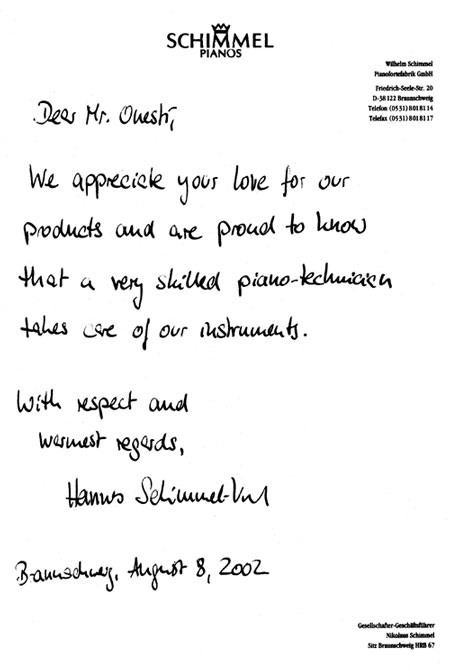 SCHIMMEL
PIANOS
Wilhelm Schimmel
Pianofortefabrik GmbH
Friedrich-Seele-Str. 20
D-38122 Braunschweig
Telefon (0531) 8018114
Telefax (0531) 8018117
Dear Mr. Onesti,
We appreciate your love for our
products and are proud to know
that a very skilled piano-technician
takes care of our instruments.
With respect and
warmest regards,
Hannes Schimmel-Vogel
Braunschweig, August 8, 2002
Gesellschafter-Geschäftsführer
Nikolaus Schimmel
Sitz Braunschweig HRB 67